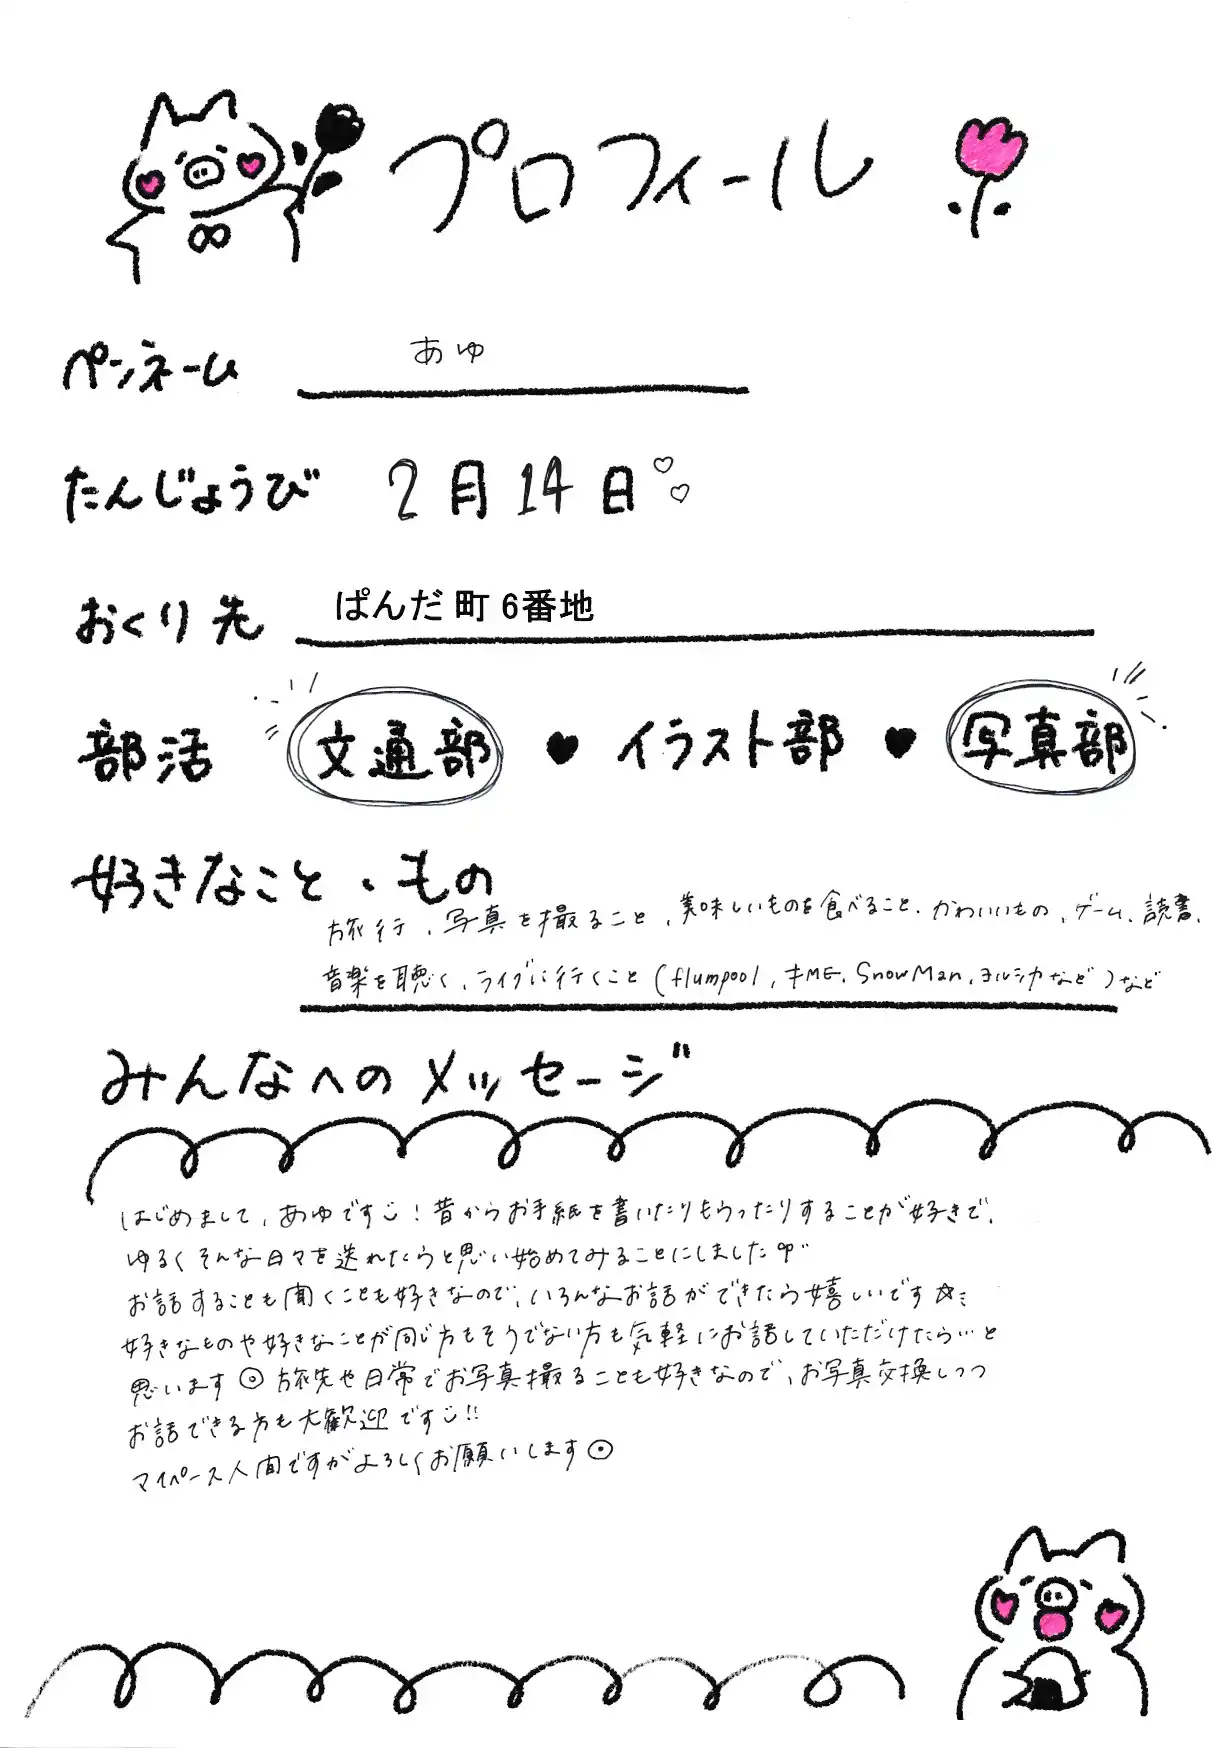 プロフィール
ペンネーム あゆ
たんじょうび 2月14日
おくり先 ぱんだ町 6番地
部活 文通部 ♥ イラスト部 ♥ 写真部
好きなこと・もの
旅行、写真を撮ること、美味しいものを食べること、かわいいもの、ゲーム、読書、
音楽を聴く、ライブに行くこと(flumpool, キME, SnowMan, ヨルシカなど)など
みんなへのメッセージ
はじめまして、あゆです!昔からお手紙を書いたりもらったりすることが好きで、
ゆるくそんな日々を送れたらと思い始めてみることにしました
お話することも聞くことも好きなので、いろんなお話ができたら嬉しいです
好きなものや好きなことが同じ方もそうでない方も気軽にお話していただけたら…と
思います 旅先や日常でお写真撮ることも好きなので、お写真交換しつつ
お話できる方も大歓迎です!!
マイペース人間ですがよろしくお願いします